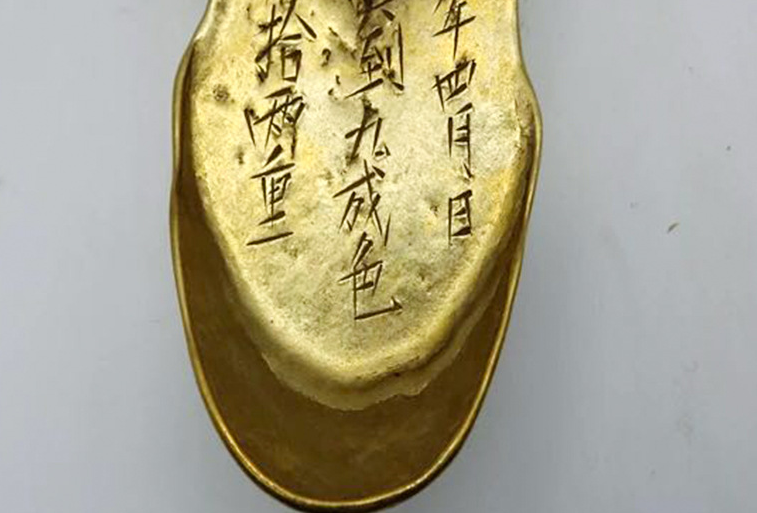 年四月日
到九成色
拾两重